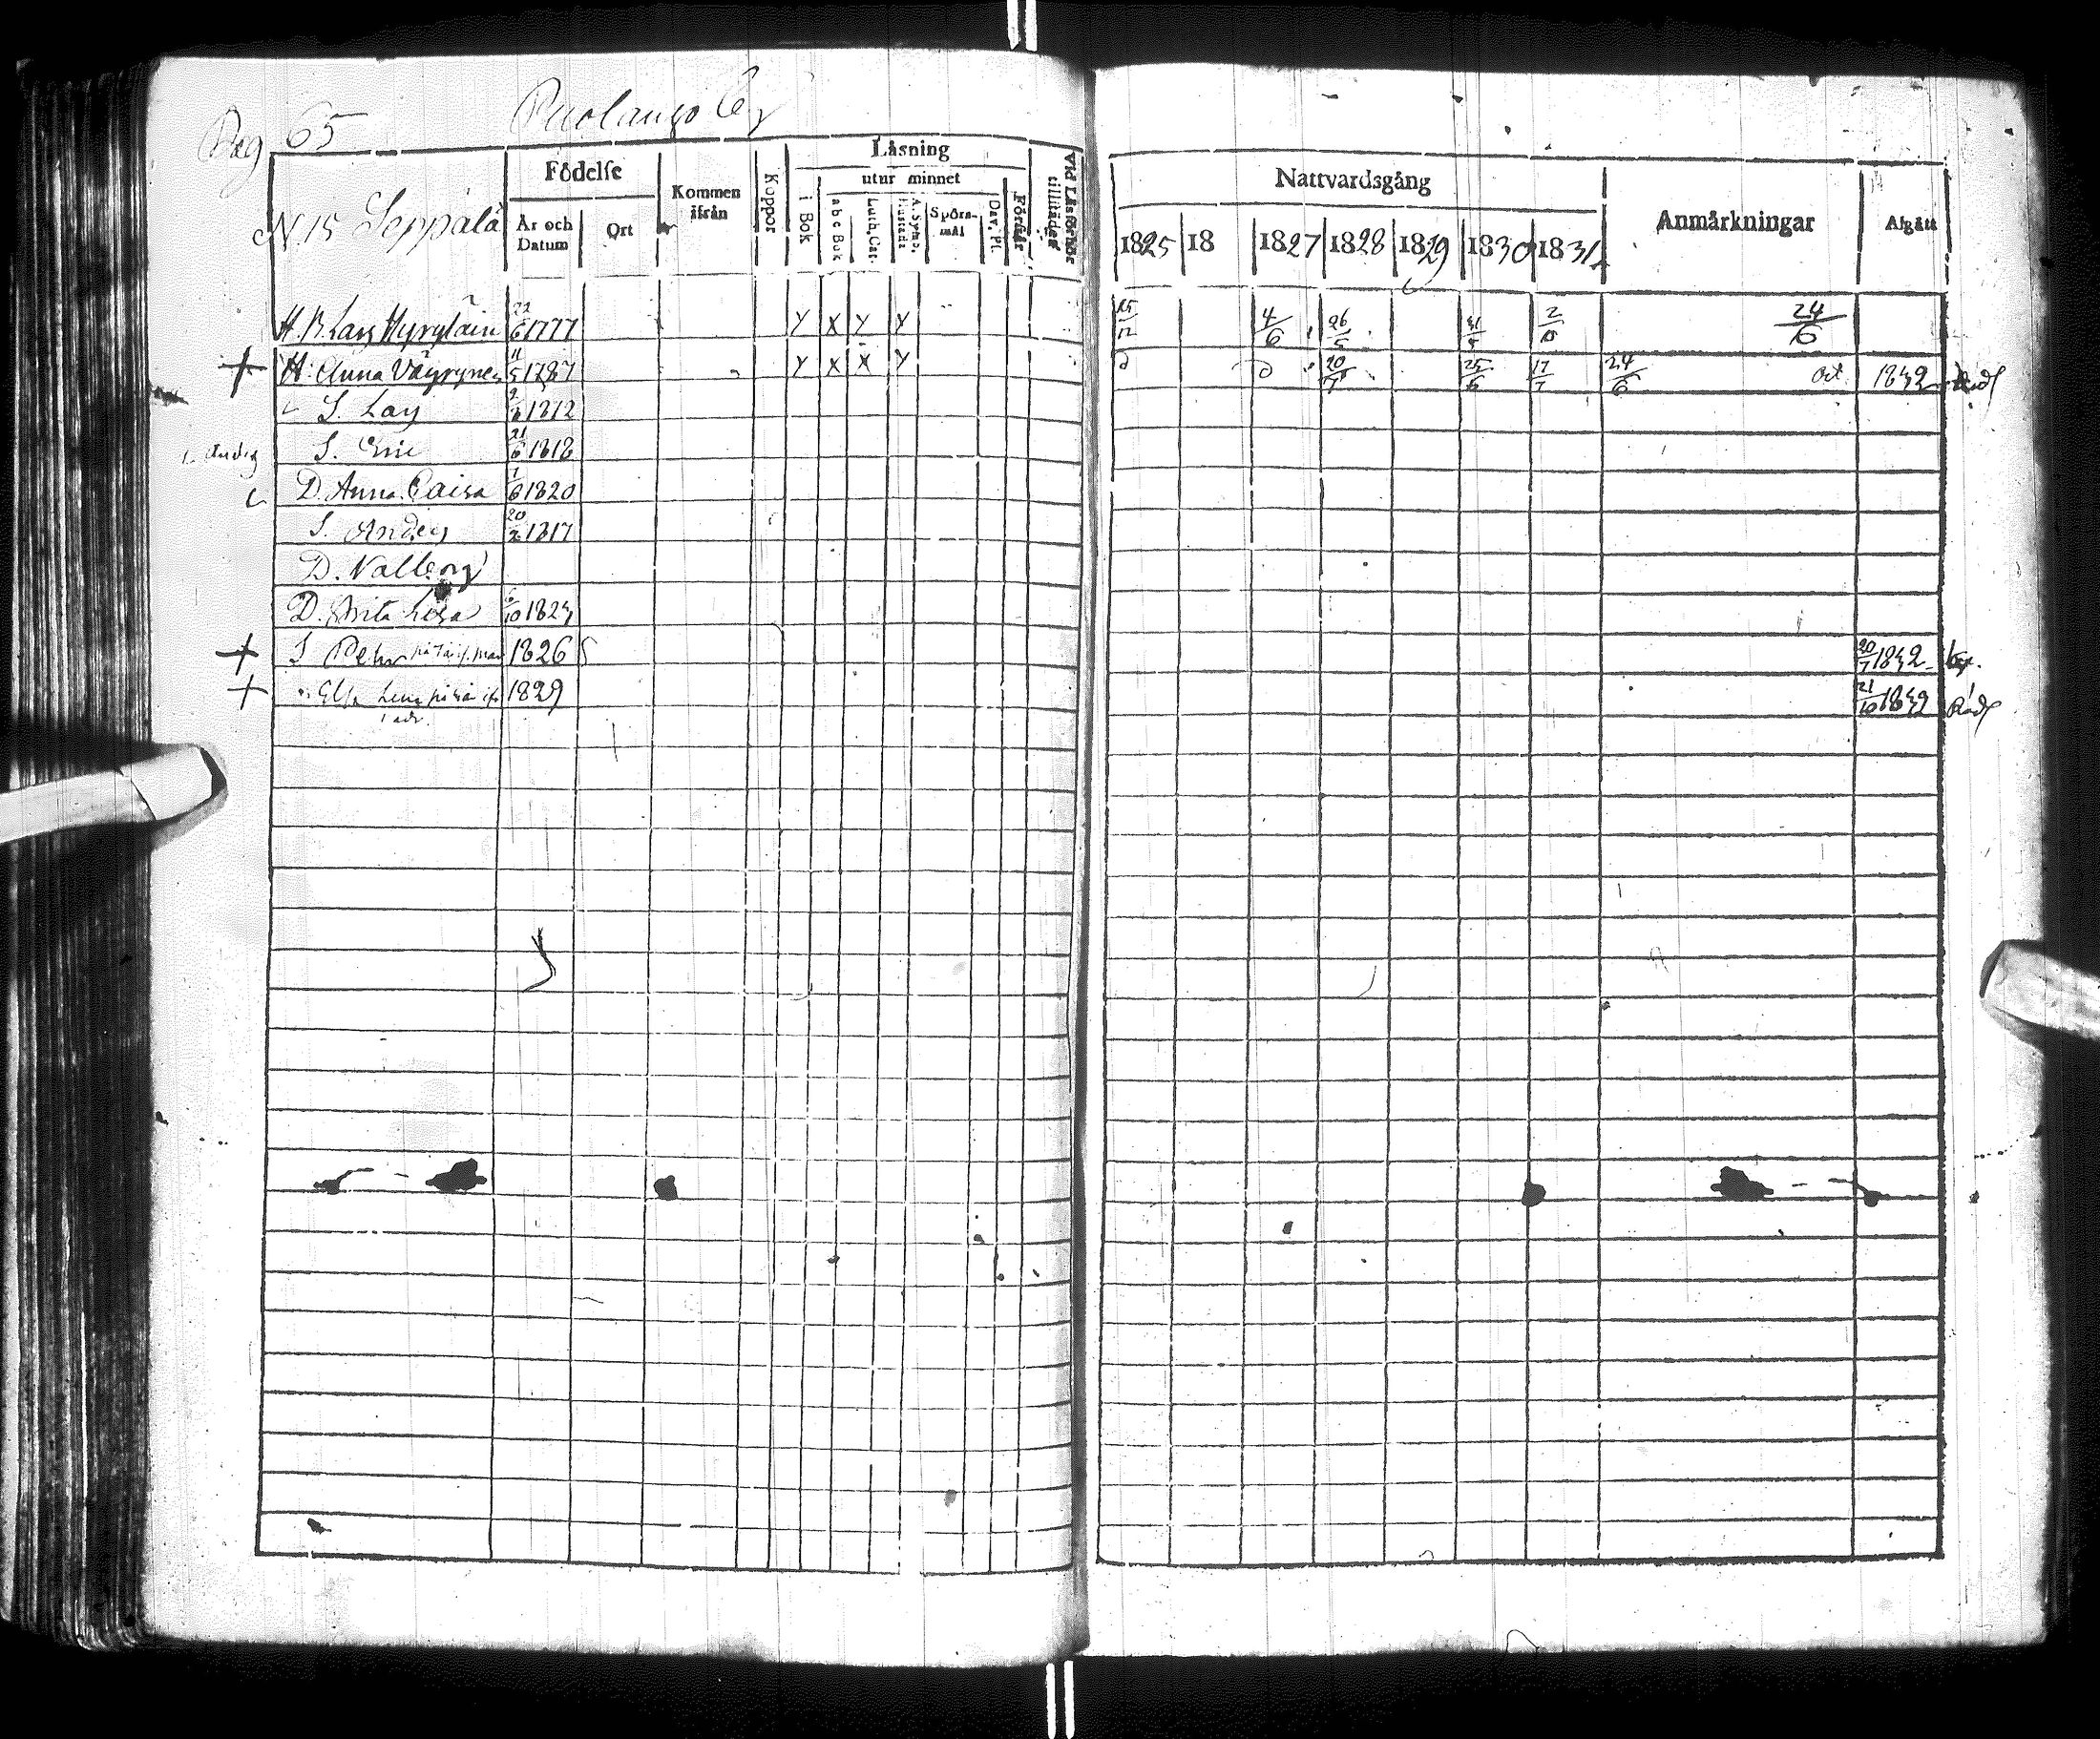 Pag 65 Puolango By
N 15 Seppälä
Födelse
År och Datum
Ort
Kommen ifrån
Koppor
Läsning
i Bok
utur minnet
abc Bok
Luth. Cat.
A. Symb. Hustafla
Spörs-mål
Dav. Pl.
Förstår
Vid Läsförhör tillstädes
Nattvardsgång
1825 18 1827 1828 1829 1830 1831
Anmärkningar
Afgått
H. B. Lars Hyryläin 22/6 1777 Y X Y Y 4/6 26/5 2/10 24/6
+ H. Anna Väyrynen 11/5 1787 Y X X Y 20/7 25/6 17/7 24/6 1832
S. Lars 1812
S. Eric 21/6 1818
D. Anna Caisa 1/6 1820
S. Anders 20/2 1817
D. Valborg
D. Brita Lisa 6/10 1824
+ S Pehr 1826 20/7 1832
+ Elsa Lena 1829 21/10 1832